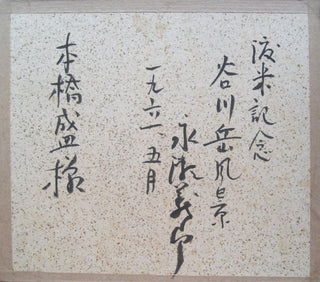 渡米記念
谷川岳風景
永瀬義郎
一九六一、五月
本橋盛様